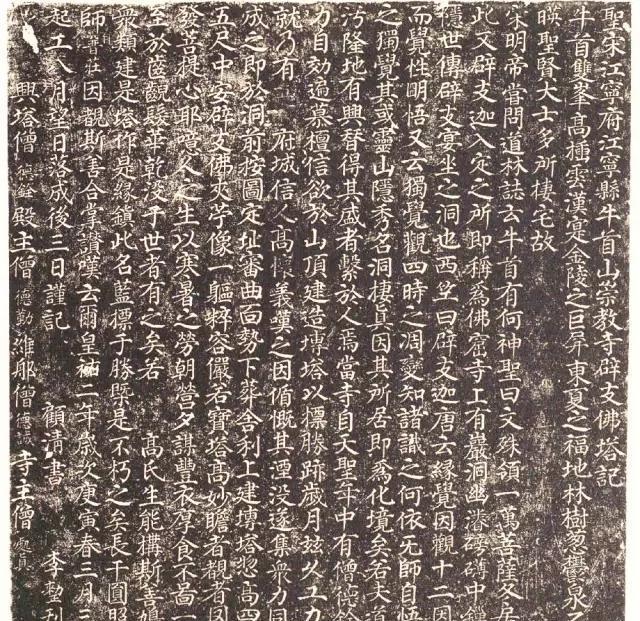 聖宋江寧府江寧縣牛首山崇教寺辟支佛塔記
牛首雙峯高揷雲漢寔金陵之巨屏東夏之福地林樹葱鬱泉
暎聖賢大士多所棲宅故
宋明帝嘗問道林誌云牛首有何神聖曰文殊領一萬菩薩冬居
此又辟支迦入定之所即稱爲佛窟寺上有巖洞幽濬磅礴中
穩世傳辟支宴坐之洞也西竺曰辟支迦唐云緣覺因觀十二因
而覺性明悟又云獨覺觀四時之凋變知諸識之何依无師自悟
之獨覺其或靈山隱秀名洞棲眞因其所居即爲化境矣若夫道
汚隆地有興替得其感者繫於人焉當寺自天聖年中有僧德銓
力自効遍募檀信欲於山頂建造塼塔以標勝跡歲月玆久工力
就乃有 府城信人高懷義之因脩慨其湮没遂集衆力同
成之即於洞前按圖定址審曲面勢下葬舍利上建塼塔惣高四
五尺中安辟支佛夾苧像一軀粹容儼若寶塔高妙瞻者覩者同
發菩提心耶噫久之生以寒暑之勞朝營夕謀豐衣厚食不啚一
至於齒齯鬚華乾没于世者有之矣若 高氏生能構斯善
衆類建是塔作是緣鎮此名藍標于勝槩是不朽之矣長干圓照
師普莊因覩斯善合掌讃嘆云爾皇祐二年歲次庚寅春三月三
起工八月望日落成後三日謹記 顧清書 李堅刊
興塔僧德銓 殿主僧德勤 維那僧德誠 寺主僧